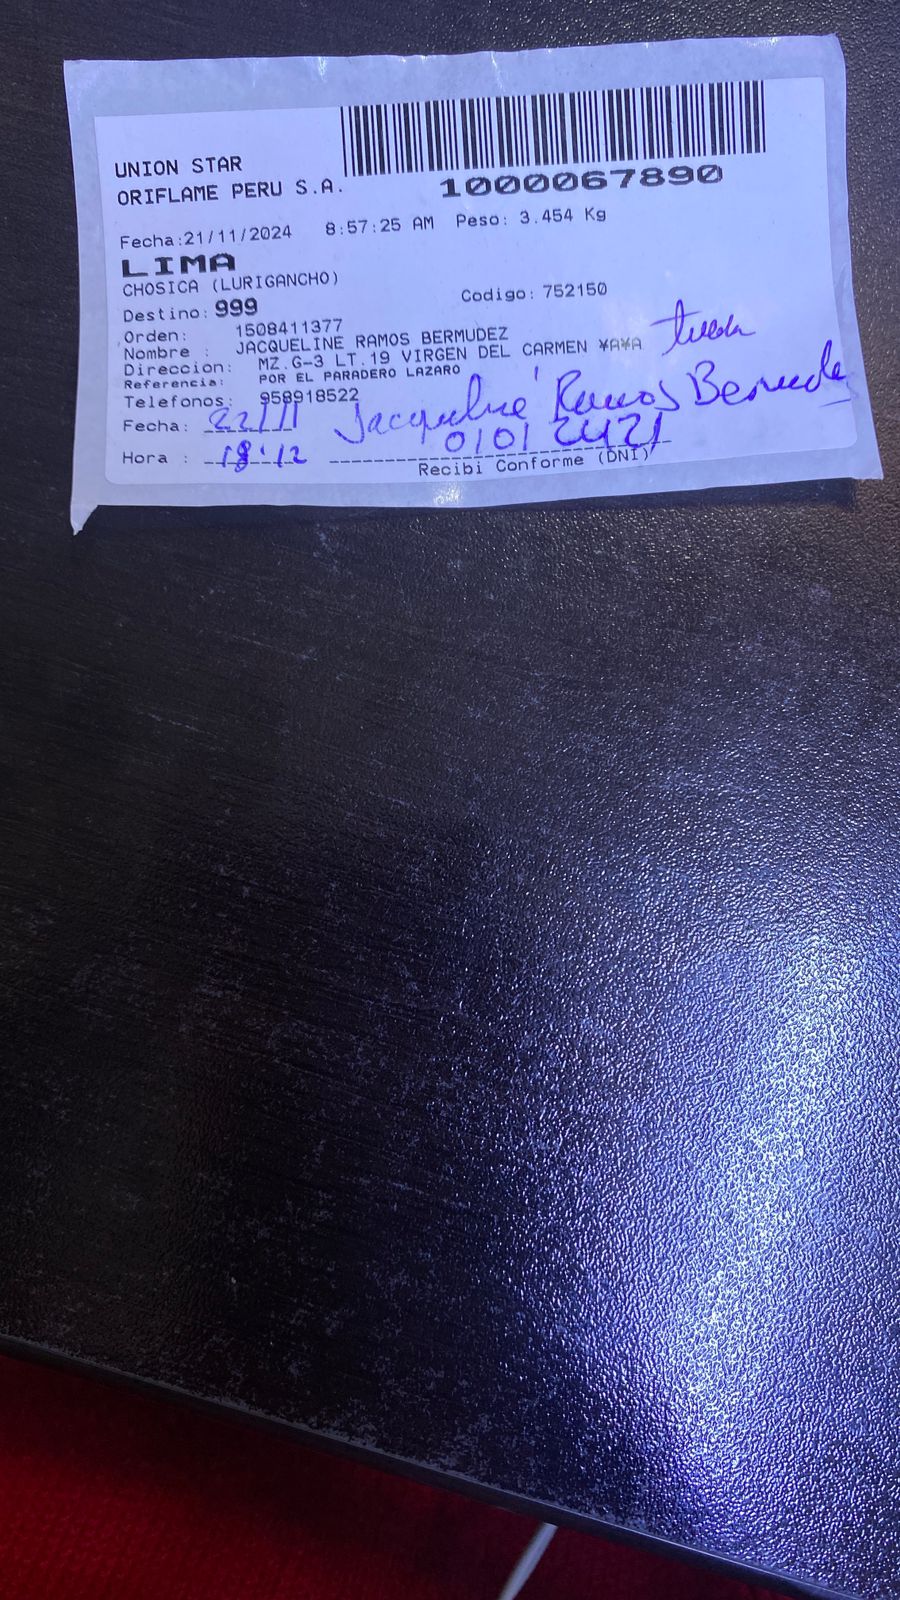 UNION STAR
ORIFLAME PERU S.A.
1000067890
Fecha:21/11/2024 8:57:25 AM Peso: 3.454 Kg
LIMA
CHOSICA (LURIGANCHO)
Destino: 999 Codigo: 752150
Orden: 1508411377
Nombre : JACQUELINE RAMOS BERMUDEZ
Direccion: MZ.G-3 LT.19 VIRGEN DEL CARMEN ¥A¥A
Referencia: POR EL PARADERO LAZARO
Telefonos: 958918522
Fecha: 22/11 Jacqueline Ramos Bermudez
Hora : 18:12
Recibi Conforme (DNI)